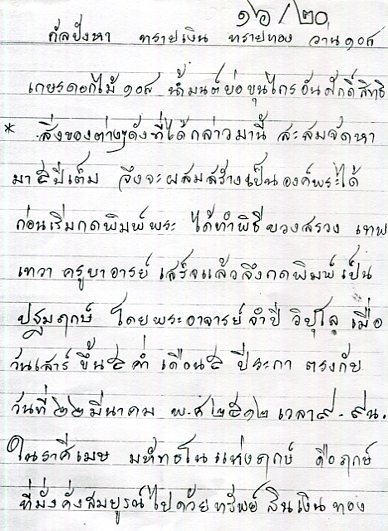 ๑๖/๒๐
กัลปังหา ทรายเงิน ทรายทอง ว่าน๑๐๘
เกษรดอกไม้ ๑๐๘ น้ำมนต์ย่อขุนไกรอันศักดิ์สิทธิ
* สิ่งของต่างๆดังที่ได้กล่าวมานี้ สะสมจัดหา
มา ๕ ปีเต็ม จึงจะผสมสร้างเป็นองค์พระได้
ก่อนเริ่มกดพิมพ์พระ ได้ทำพิธีบวงสรวง เทพ
เทวา ครูบาอารย์ เสร็จแล้วจึงกดพิมพ์เป็น
ปฐมฤกษ์ โดยพระอาจารย์ จำปี วิปุโล เมื่อ
วันเสาร์ ขึ้น ๕ ค่ำ เดือน ๕ ปีระกา ตรงกับ
วันที่ ๒๒ มีนาคม พ.ศ ๒๕๑๒ เวลา ๙.๙น.
ในราศีเมษ มหัทธโน แห่งฤกษ์ คือฤกษ์
ที่มั่งคั่งสมบูรณ์ไปด้วยทรัพย์ สินเงิน ทอง